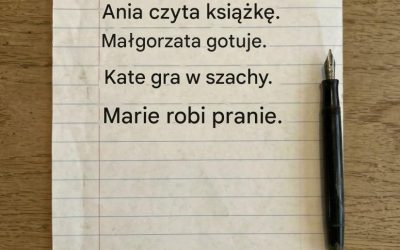 Ania czyta książkę.
Małgorzata gotuje.
Kate gra w szachy.
Marie robi pranie.